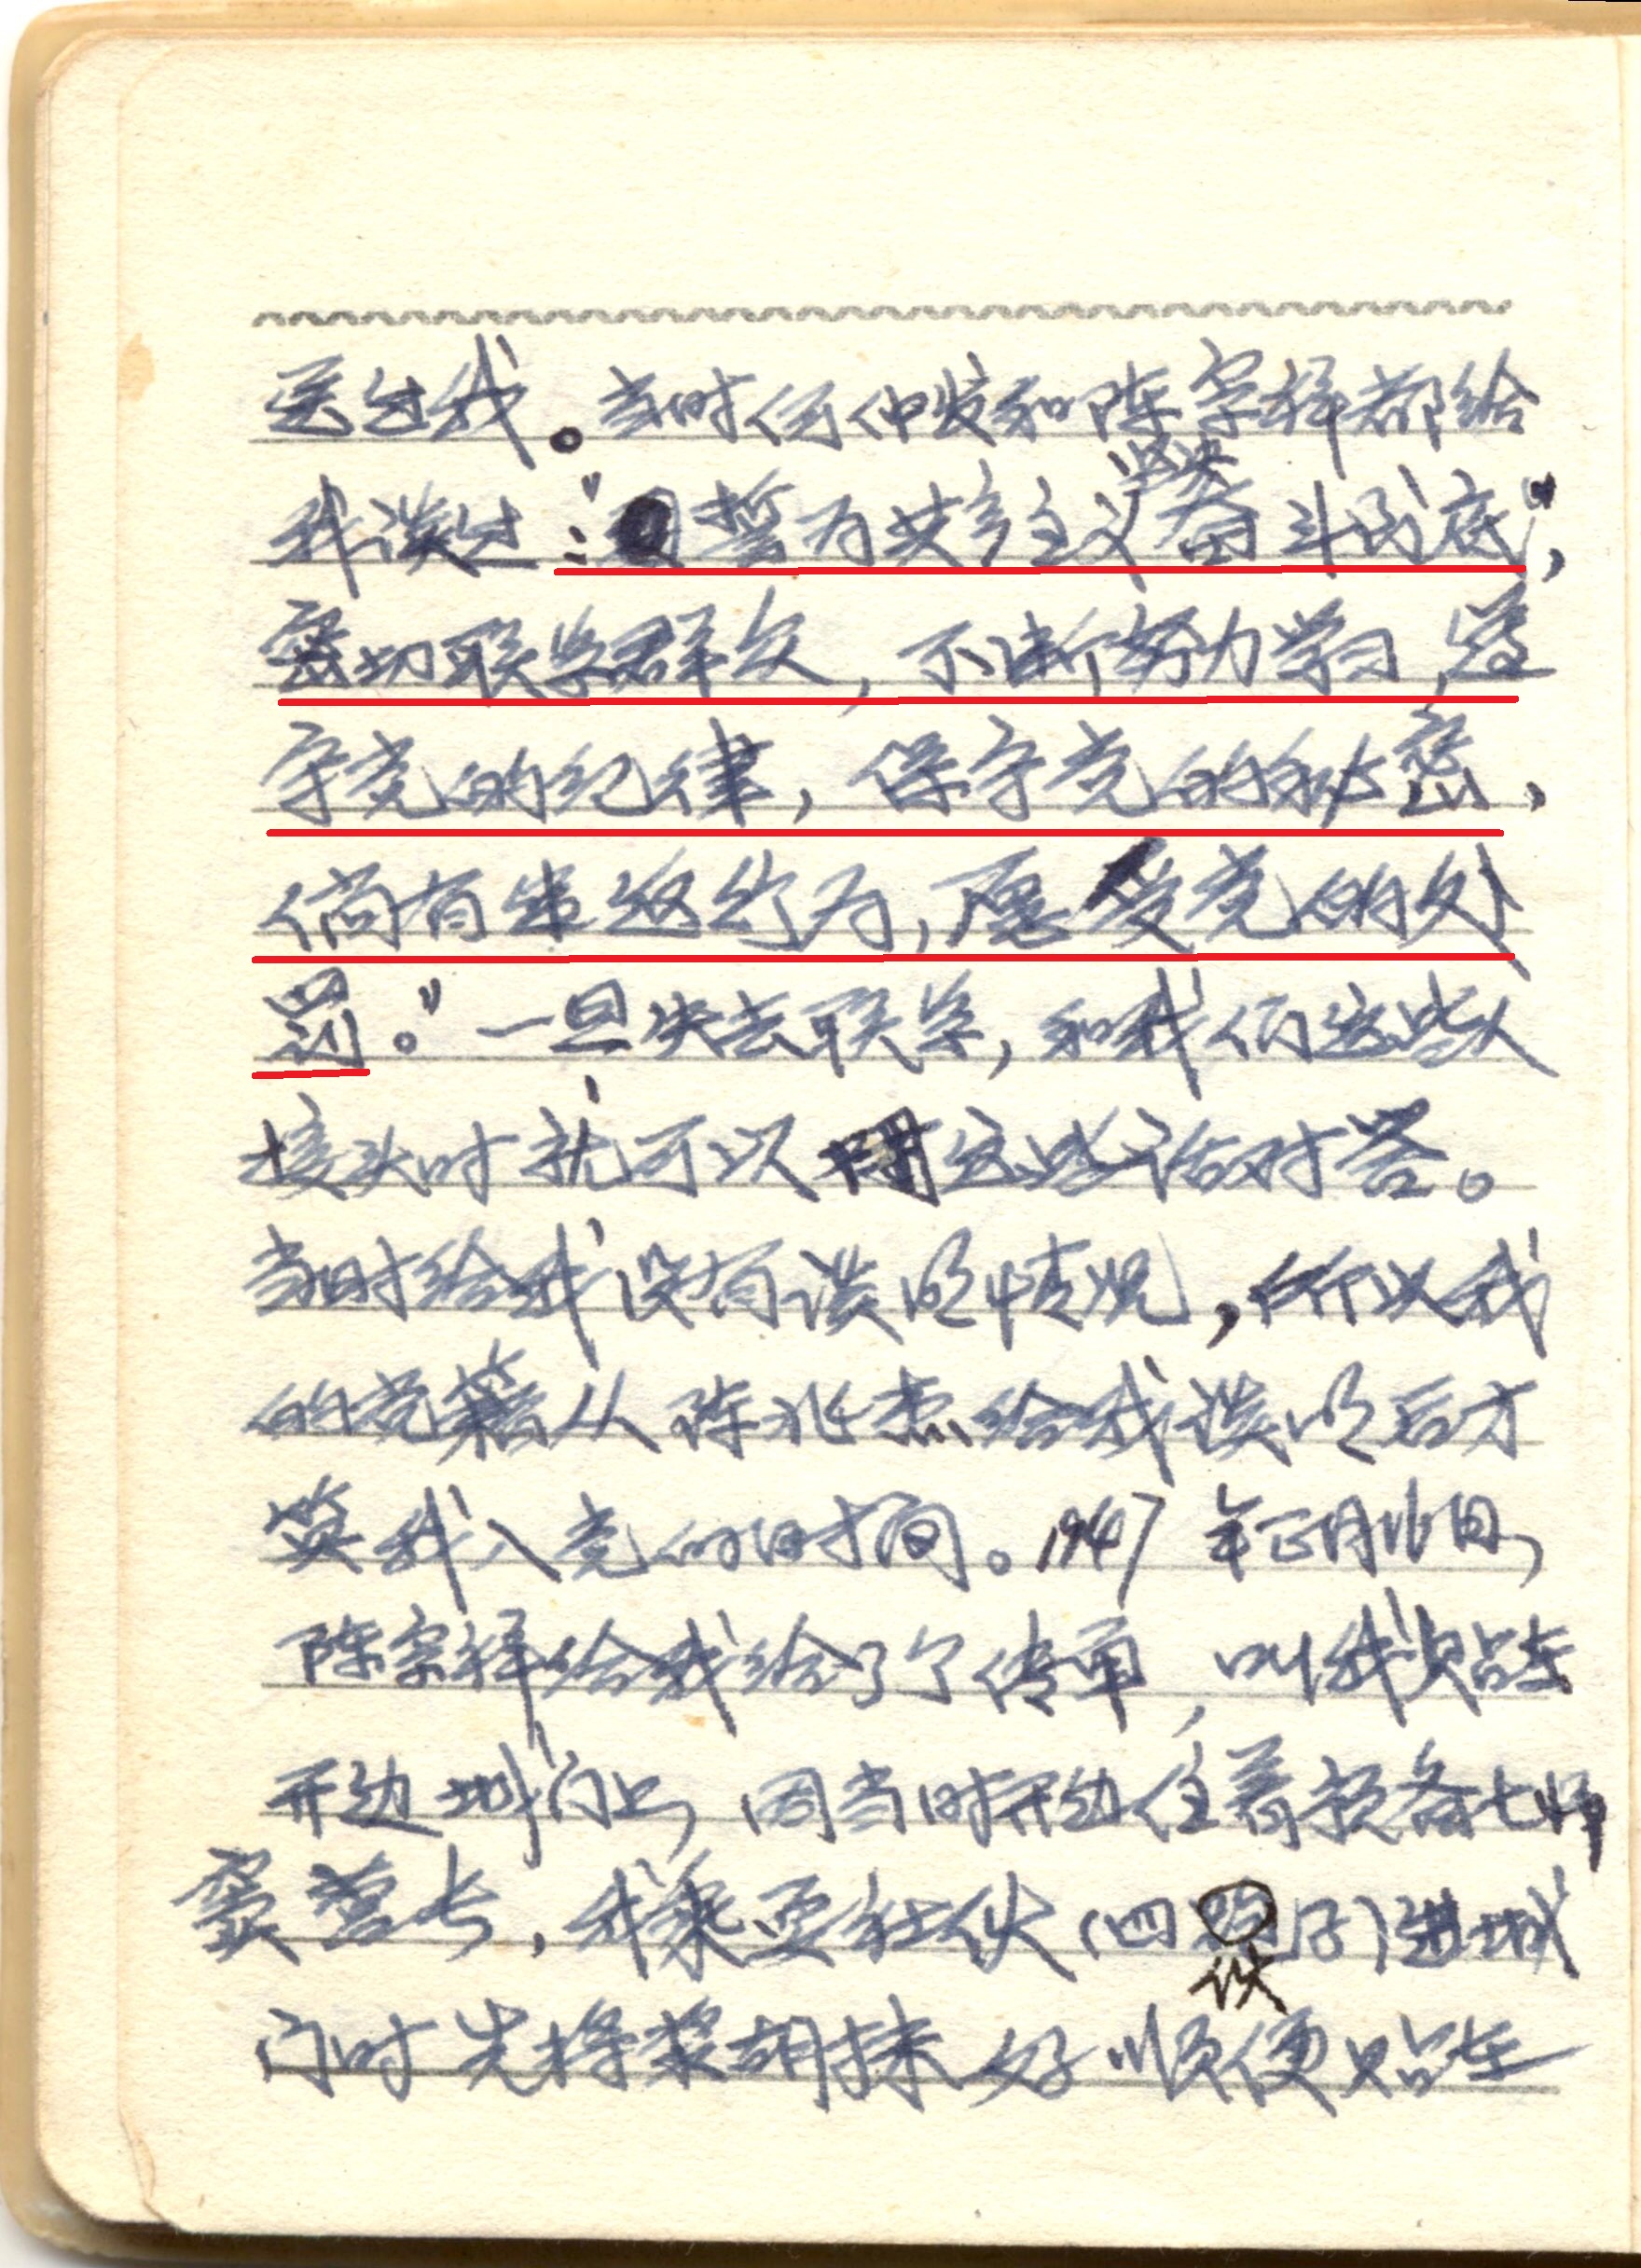 医过我。当时任仲发和陈宗择都给
坚决
我谈过:"誓为共产主义奋斗到底",
密切联系群众,不断努力学习,遵
守党的纪律,保守党的秘密,
倘有违返行为,愿受党的处
罚。"一旦失去联系,和我们这些人
接头时就可以用这些话对答。
当时给我没有谈明情况,所以我
的党籍从陈兆杰给我谈明后才
算我入党的时间。1947年正月16日,
陈宗择给我给了个传单,叫我贴在
开边城门上,因当时开边住着预备七师
窦营长,我乘耍社伙(四伙子)进城
门时先将浆胡抹好顺便贴在